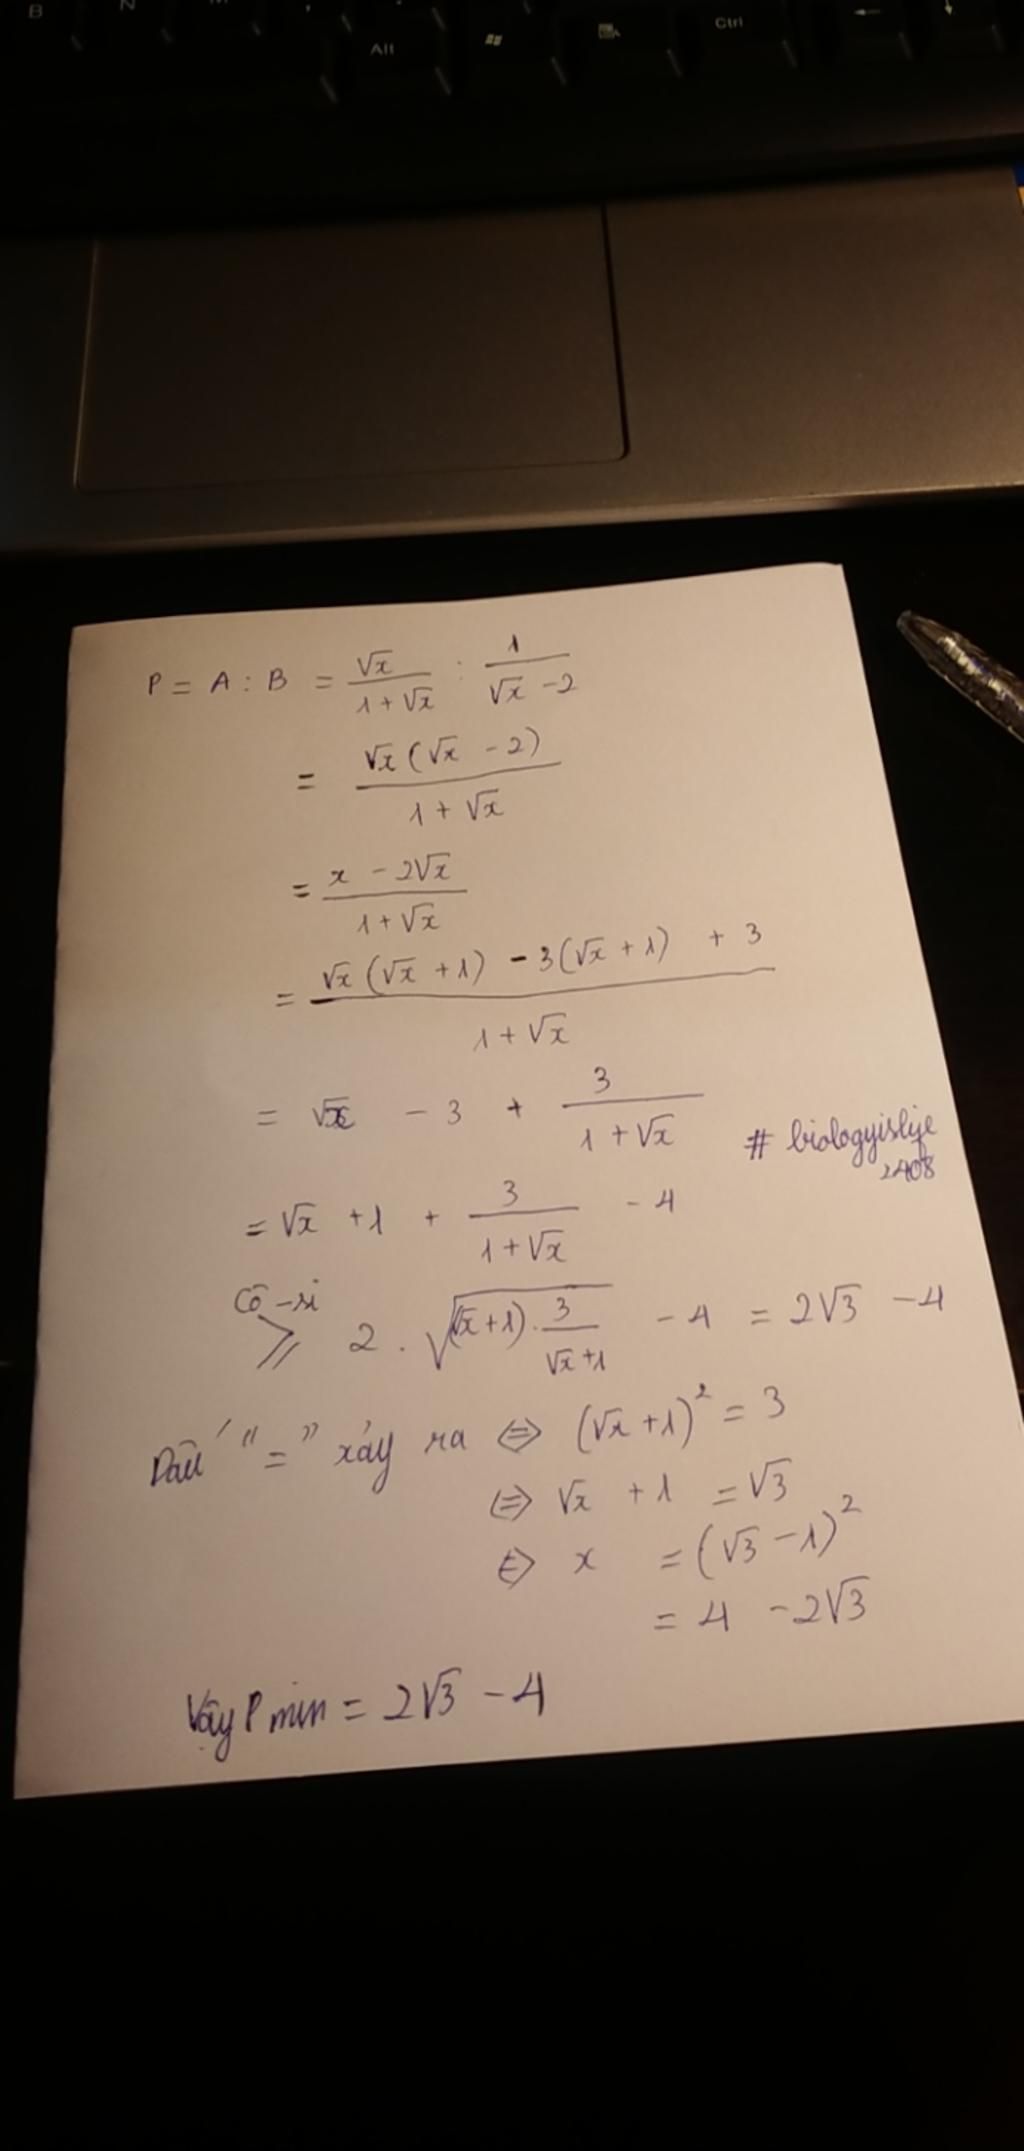 B N M
Alt Ctrl
P = A : B = √x / (1 + √x) : 1 / (√x - 2)
= √x (√x - 2) / (1 + √x)
= (x - 2√x) / (1 + √x)
= (√x (√x + 1) - 3(√x + 1) + 3) / (1 + √x)
= √x - 3 + 3 / (1 + √x)
# biologyislife
2408
= √x + 1 + 3 / (1 + √x) - 4
Cô-si
≥ 2 . √((√x + 1) . 3 / (√x + 1)) - 4 = 2√3 - 4
Dấu "=" xảy ra ⇔ (√x + 1)² = 3
⇔ √x + 1 = √3
⇔ x = (√3 - 1)²
= 4 - 2√3
Vậy P min = 2√3 - 4